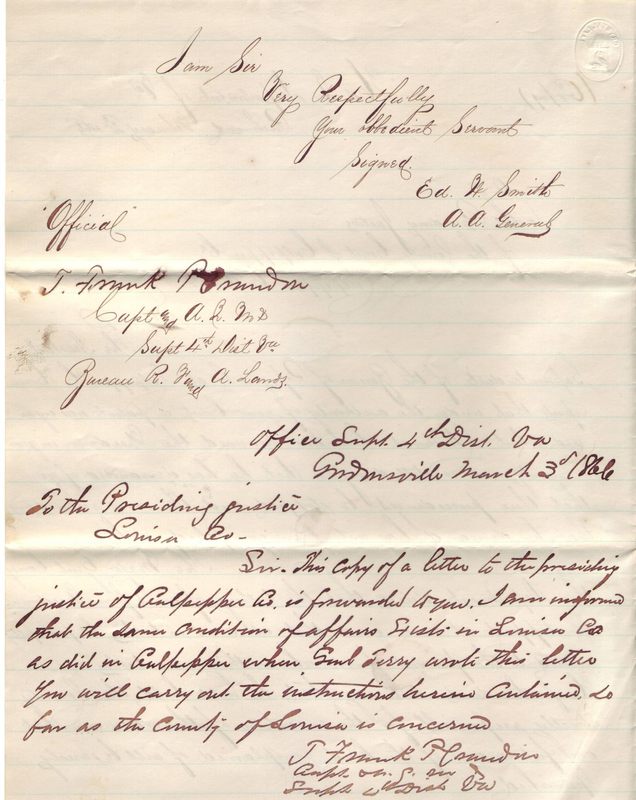 I am Sir
Very Respectfully
Your obbedient Servant
Signed.
Ed. W. Smith
A. A. General
"Official"
T. Frank P. Crandon
Capt and A. Q. M
Supt 4th Dist Va
Bureau R. F and A. Lands.
Office Supt. 4th Dist. Va
Gordonsville March 3d 1866
To the Presiding justice
Louisa Co.
Sir. This copy of a letter to the presiding
justice of Culpepper Co. is forwarded to you. I am informed
that the same condition of affairs Exists in Louisa Co
as did in Culpepper when Genl Terry wrote this letter
You will carry out the instructions herein Contained. So
far as the County of Louisa is concerned
T. Frank P. Crandon
Capt & A. Q. M
Supt 4th Dist Va